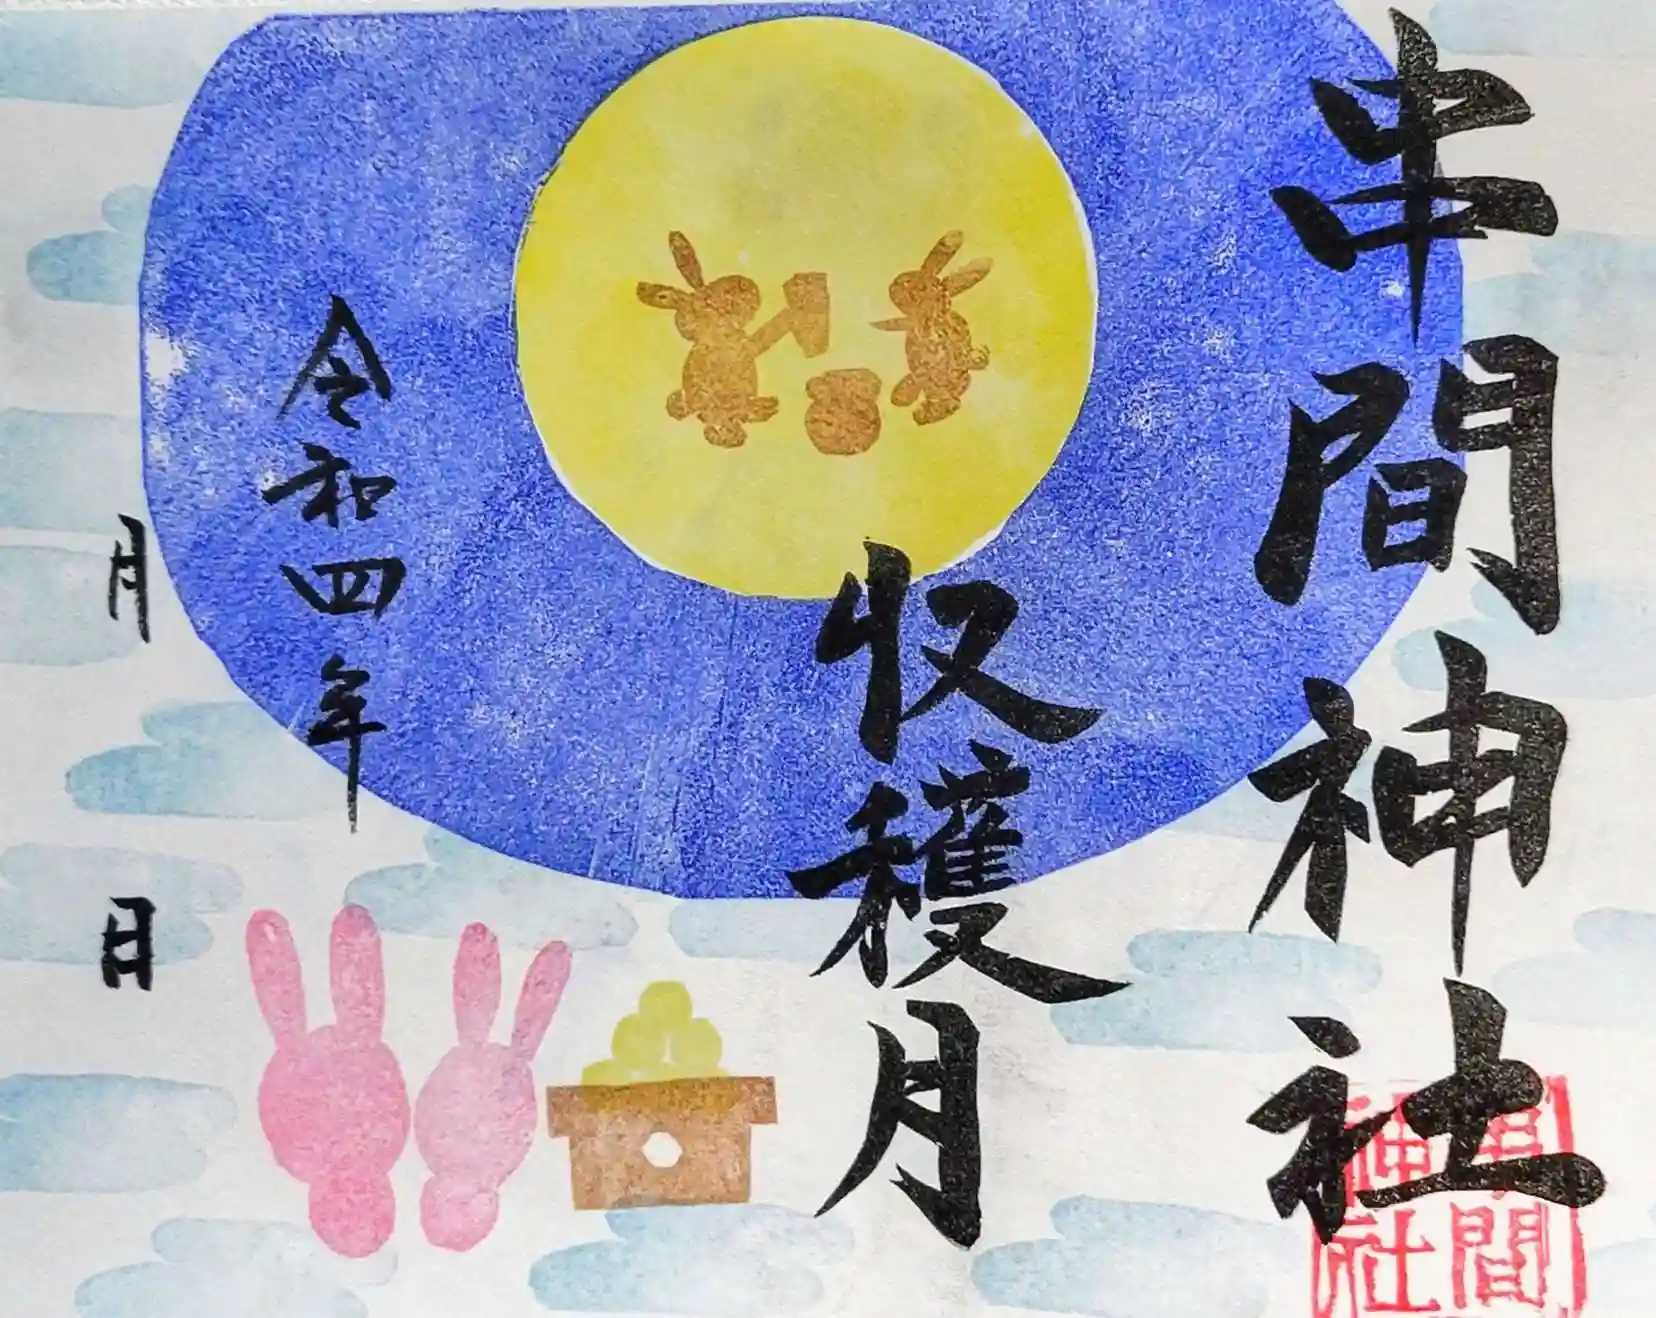 串間神社
収穫月
令和四年
月 日
串間
神社